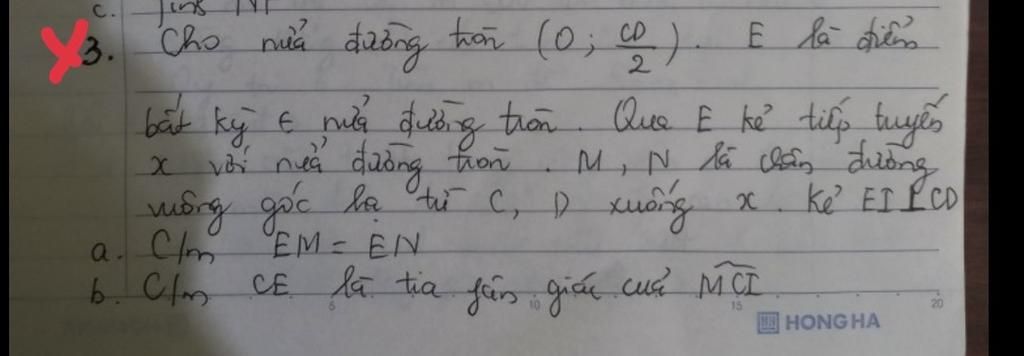 c. Tính
3. Cho nửa đường tròn (O; CD/2). E là điểm
bất kỳ ∈ nửa đường tròn. Qua E kẻ tiếp tuyến
x với nửa đường tròn. M, N là chân đường
vuông góc hạ từ C, D xuống x. Kẻ EI ⊥ CD
a. C/m EM = EN
b. C/m CE là tia fân giác của MCI
5 10 15 20
HONG HA